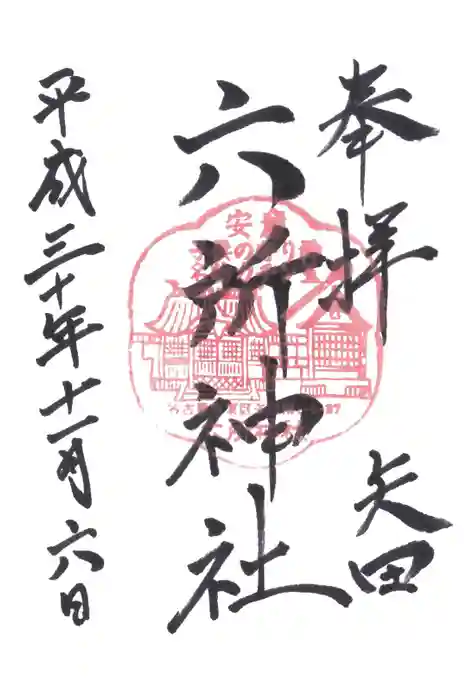 奉拝 矢田
六所神社
平成三十年十一月六日
安産